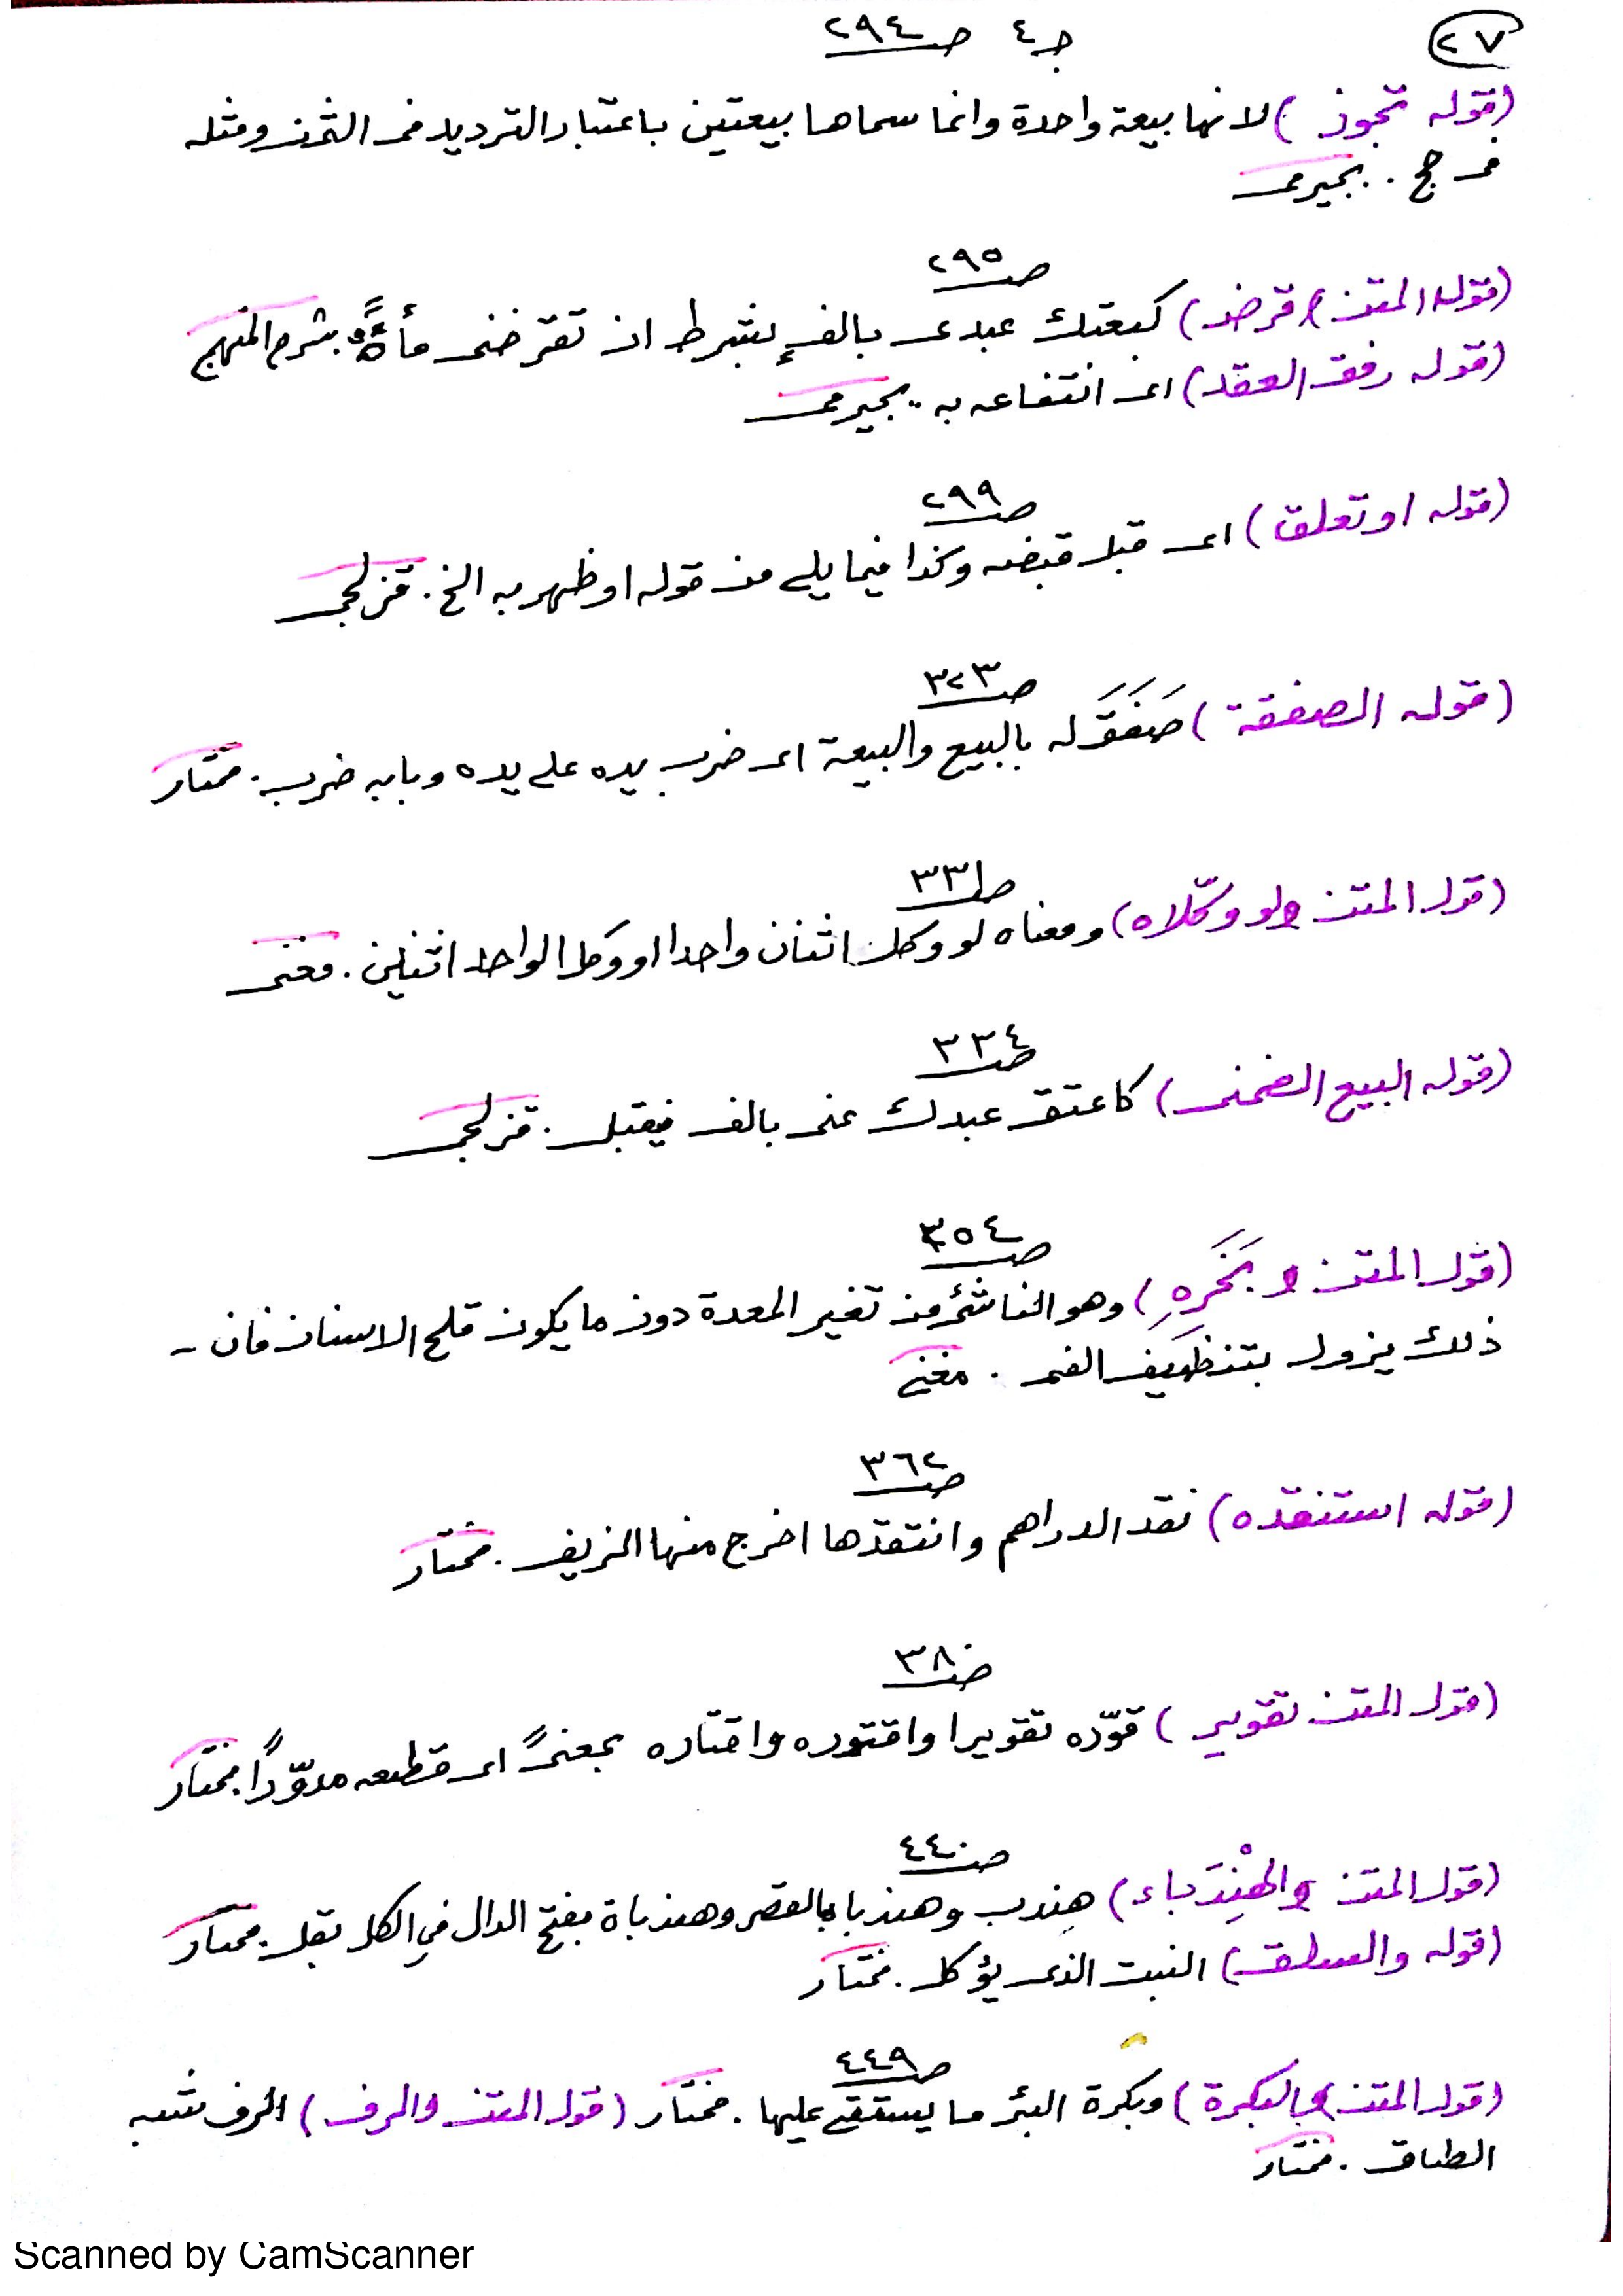 ٢٧
جـ ٤ صـ ٢٩٤
(قوله تجوز) لانها بيعة واحدة وانما سماها بيعتين باعتبار الترديد فى الثمن ومثله
فى حج . بجيرمى
صـ ٢٩٥
(قوله المتن قرض) كبعتك عبدى بالفٍ بشرط ان تقرضنى مأة. شرح المنهج
(قوله رفق العقد) اى انتفاعه به . بجيرمى
صـ ٢٩٩
(قوله او تعلق) اى قبل قبضه وكذا فيما يلى من قوله او ظهر به الخ . قزلجى
صـ ٣٢٣
(قوله الصفقة) صَفَقَ له بالبيع والبيعة اى ضرب يده على يده وبابه ضرب . مختار
صـ ٣٣١
(قول المتن ولو وكّلاه) ومعناه لو وكل اثنان واحدا او وكل الواحد اثنين . مغنى
صـ ٣٣٤
(قوله البيع الضمنى) كاعتق عبدك عنى بالف فيقبل . قزلجى
صـ ٣٥٤
(قول المتن وبَخَرِهِ) وهو الناشئ من تغير المعدة دون ما يكون قلح الاسنان فان -
ذلك يزول بتنظيف الفم . مغني
صـ ٣٦٢
(قوله استنقده) نقد الدراهم وانتقدها اخرج منها الزيف . مختار
صـ ٣٨٠
(قول المتن تقوير) قوّره تقويرا واقتوره واقتاره بمعنىً اى قطعه مدوّرًا . مختار
صـ ٤٤٠
(قول المتن والهِنْدَباء) هِندب وهندبا بالقصر وهندباة بفتح الدال في الكل بقل . مختار
(قوله والسلق) النبت الذى يؤكل . مختار
صـ ٤٤٩
(قول المتن والبكرة) وبكرة البئر ما يستقى عليها . مختار (قول المتن والرف) الرف شبه
الطاق . مختار
Scanned by CamScanner